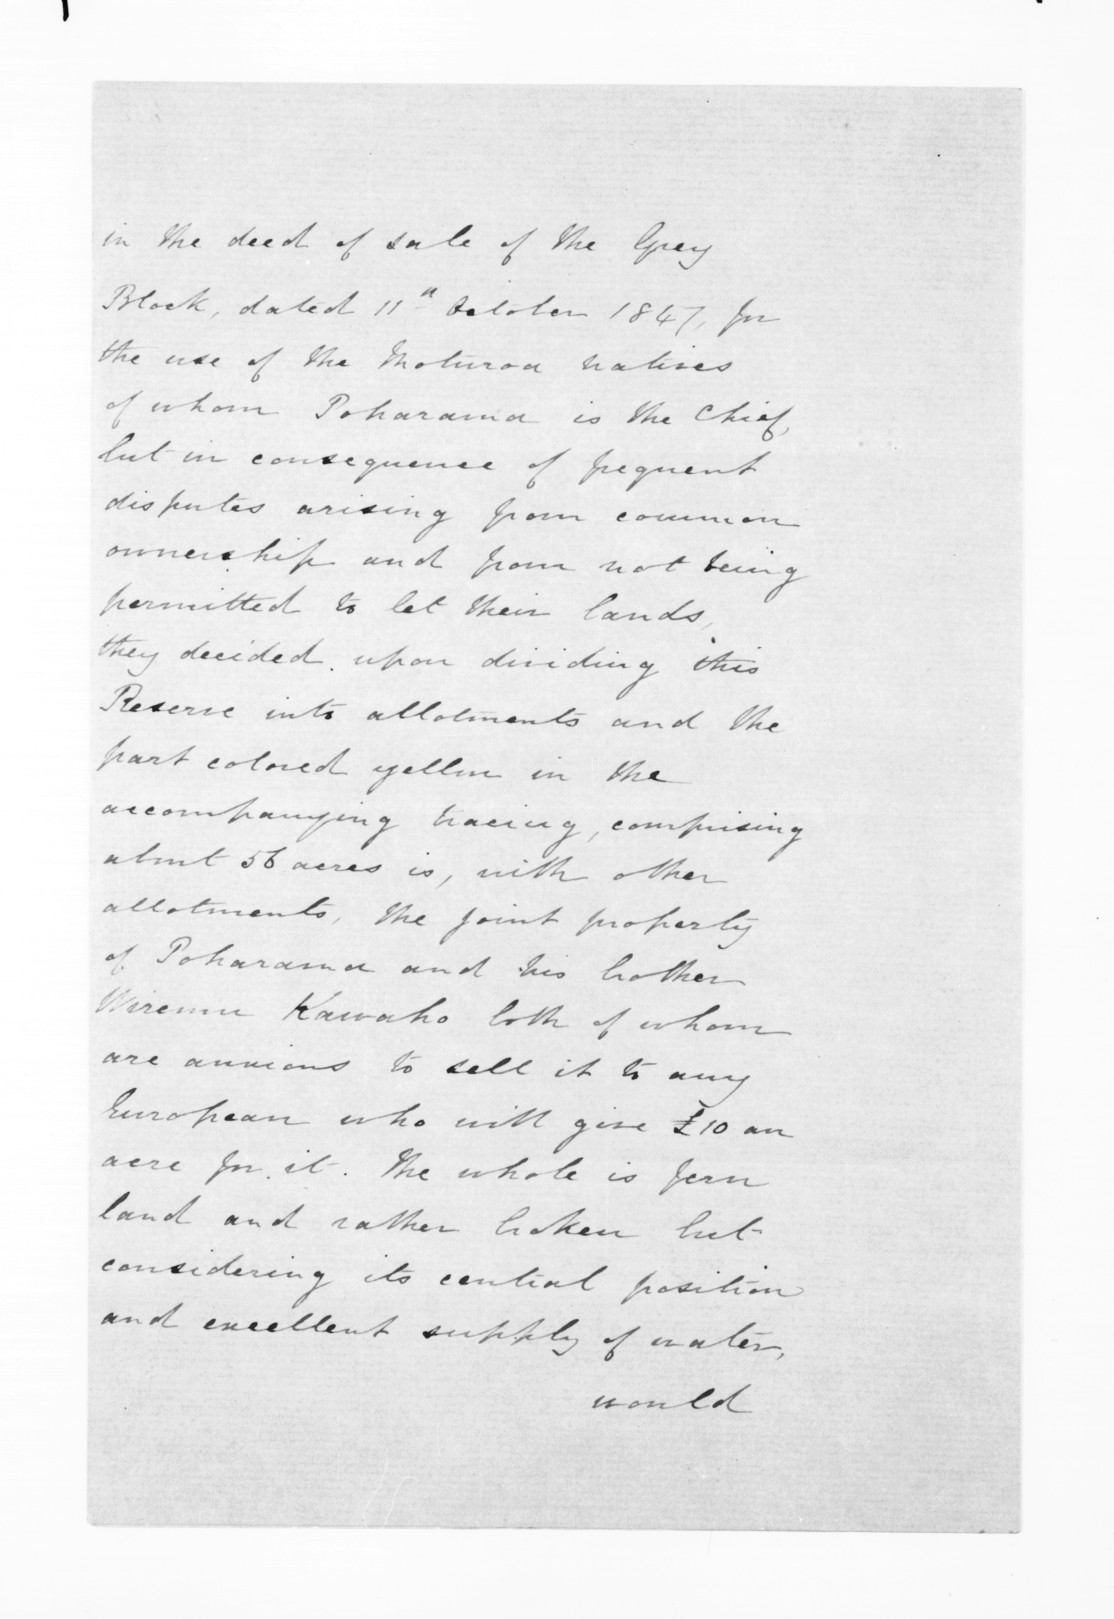 in the deed of sale of the Grey
Block, dated 11th October 1847, for
the use of the Moturoa natives
of whom Poharama is the Chief,
but in consequence of frequent
disputes arising from common
ownership and from not being
permitted to let their lands,
they decided upon dividing this
Reserve into allotments and the
part colored yellow in the
accompanying tracing, comprising
about 56 acres is, with other
allotments, the joint property
of Poharama and his brother
Wiremu Kawaho both of whom
are anxious to sell it to any
European who will give £10 an
acre for it. The whole is fern
land and rather broken but
considering its central position
and excellent supply of water,
would